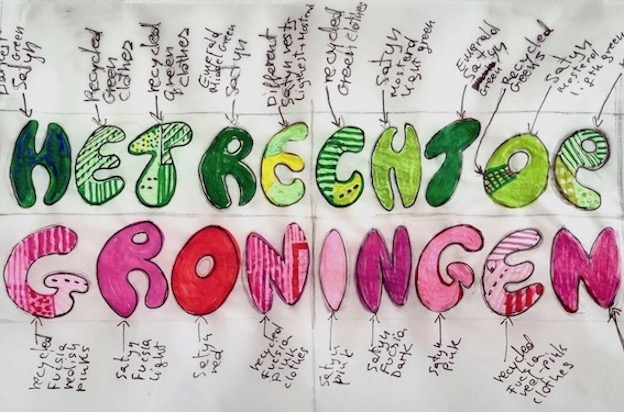 Darkest
Green
Satyn
Recycled
Green
clothes
recycled
green
clothes
Emerald
Satyn
Different
Satyn rests
recycled
Green clothes
Satyn
Mostard
light green
Emerald
Satyn
Green
Recycled
Greens
Satyn
Mosterd
green
HET RECHT OP
GRONINGEN
recycled
Fucsia
redish
pinks
Satyn
Fucsia
Light
Satyn
red
recycled
fucsia
pink
clothes
Satyn
pink
Satyn
Fucsia
Dark
Satyn
pink
recycled
fucsia
red-pink
clothes